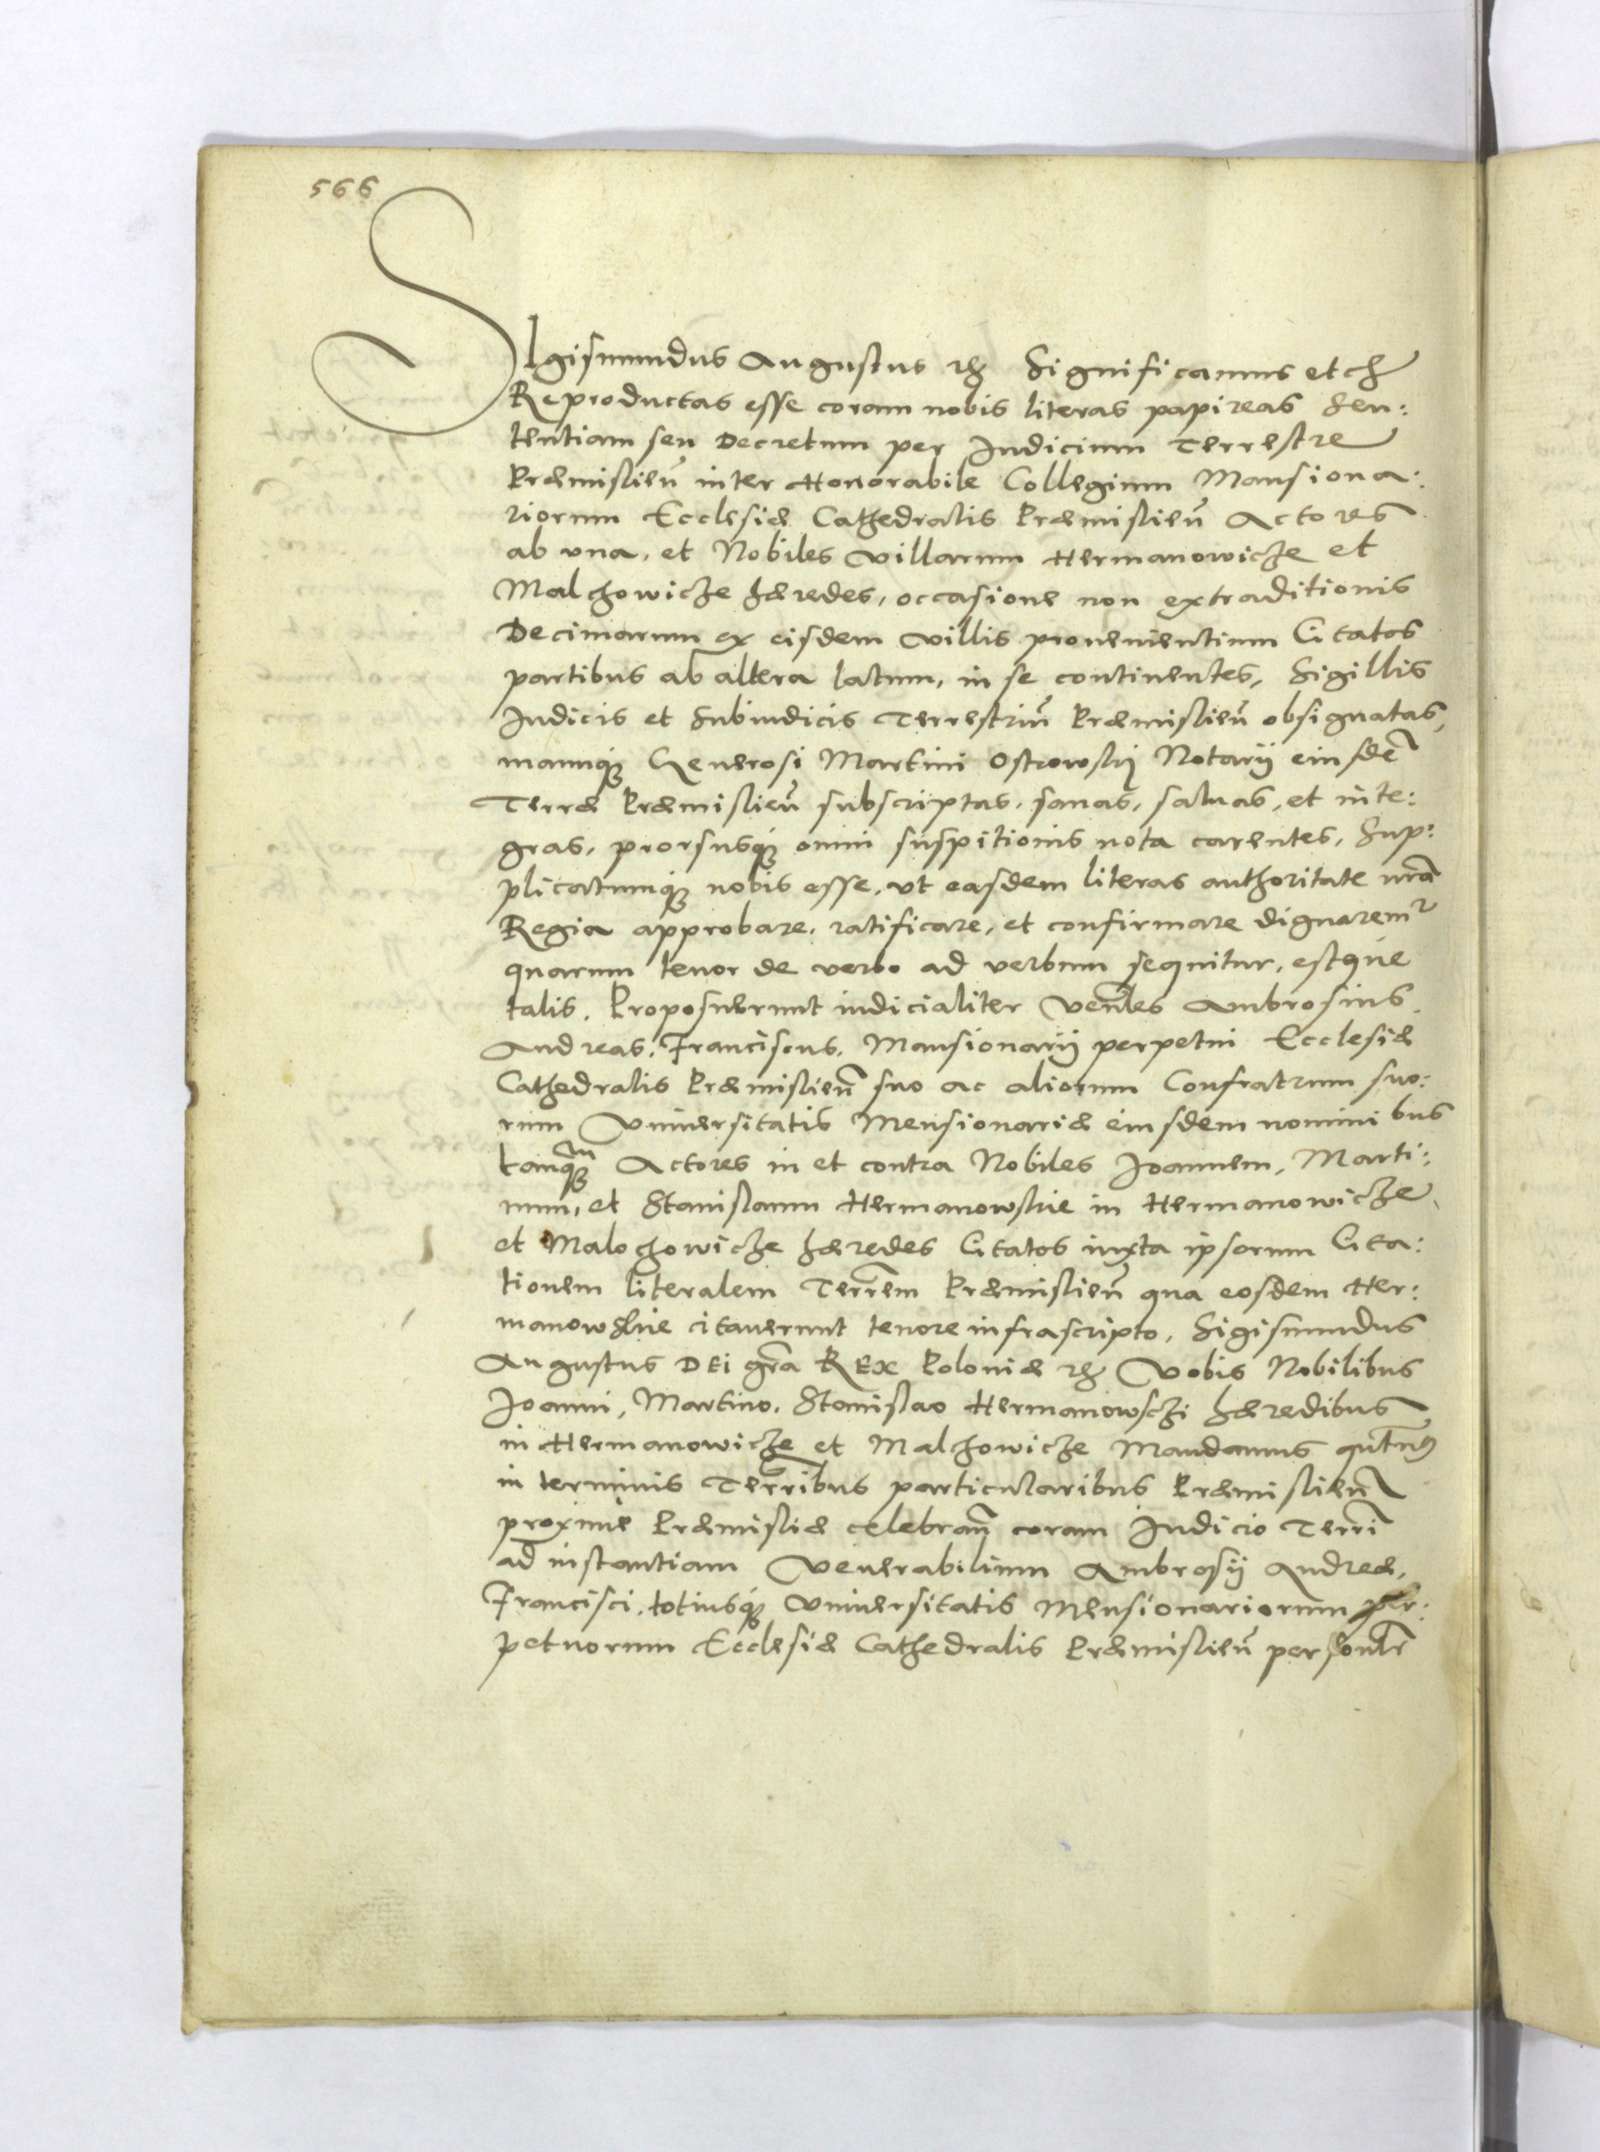 566
SIgismundus Augustus etc Significamus etc
Reproductas esse coram nobis literas papireas Sen:
tentiam seu Decretum per Iudicium Terrestre
Præmislien̄ inter Honorabile Collegium Mansiona:
riorum Ecclesiæ Cathedralis Præmislien̄ Actores
ab vna, et Nobiles villarum Hermanowicze et
Malchowicze hæredes, occasione non extraditionis
Decimarum ex eisdem villis prouenientium Citatos
partibus ab altera latum, in se continentes, Sigillis
Iudicis et Subiudicis Terrestriū Præmislien̄ obsignatas,
manuq́ue Generosi Martini Ostrowskij Notarij eiusdē
Terræ Præmislien̄ subscriptas, sanas, saluas, et inte:
gras, prorsusq́ue omni suspitionis nota carentes, Sup:
plicatumq́ue nobis esse, vt easdem literas authoritate nr̄a
Regia approbare, ratificare, et confirmare dignarem̄r
quarum tenor de verbo ad verbum sequitur, estq́ue
talis. Proposuerunt iudicialiter Ven̄les Ambrosius
Andreas, Franciscus, Mansionarij perpetui Ecclesiæ
Cathedralis Præmislien̄ suo ac aliorum Confratrum suo:
rum Vniuersitatis Mensionariæ eiusdem nominibus
tanq̄m Actores in et contra Nobiles Ioannem, Marti:
num, et Stanislaum Hermanowskie in Hermanowicze
et Malochowicze hæredes Citatos iuxta ipsorum Cita:
tionem literalem Terr̄em Præmislien̄ qua eosdem Her:
manowskie citauerunt tenore infrascripto. Sigismundus
Augustus DEi gr̄a REX Poloniæ etc Vobis Nobilibus
Ioanni, Martino, Stanislao Hermanowsczi hæredibus
in Hermanowicze et Malchowicze Mandamus qūtn9
in terminis Terr̄ibus particularibus Præmislien̄
proxime Præmisliæ celebran̄ coram Iudicio Terr̄i
ad instantiam Venerabilium Ambrosij Andreæ,
Francisci, totiusq́ue Vniuersitatis Mensionariorum per:
petuorum Ecclesiæ Cathedralis Præmislien̄ personlr̄